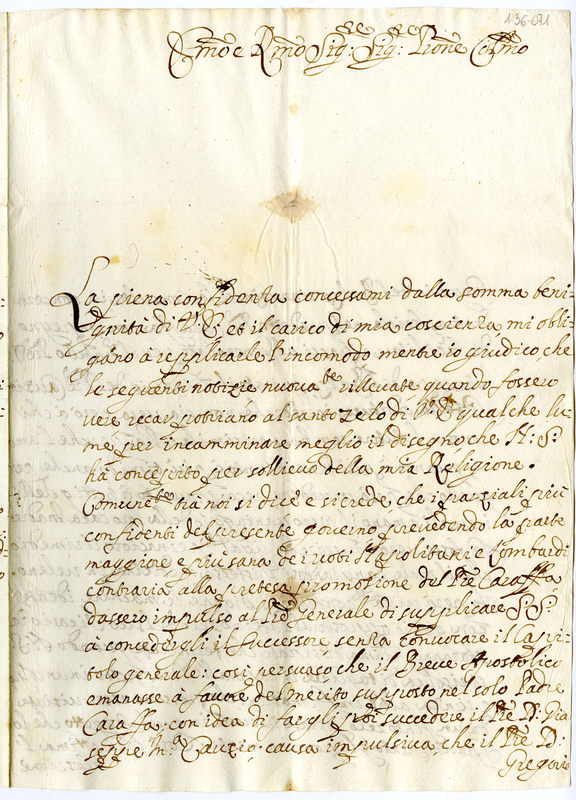 1-36-071
Emo e Rmo Sig: Sig: Prone Colmo
La piena confidenza concessami dalla somma beni-
gnità di V. E. et il carico di mia coscienza, mi obli-
gano à repplicarle l'incomodo mentre io giudico che
le seguenti notizie nuovate rillevate, quando fossero
vere recar potriano al santo zelo di V. E. qualche lu-
me per incamminare meglio il disegno che N. S.
hà conceputo per sollievo della mia Religione.
Comunete trà noi si dice e si crede, che i parziali più
confidenti del presente governo prevedendo la parte
maggiore e più sana de i voti Napolitani e Lombardi
contraria alla pretesa promotione del Pre Caraffa,
dassero impulso al Pre Generale di supplicare S. S.
à concedergli il successore senza convocare il Capi-
tolo generale: così persuaso che il Breve Apostolico
emanasse à favore del merito supposto nel solo Padre
Caraffa; con idea di fargli poi succedere il Pre D: Giu-
seppe Ma Cauzio; causa impulsiva, che il Pre D:
Gregorio